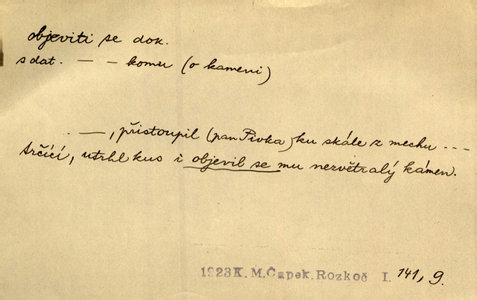 objeviti se dok.
s dat. — – komu (o kameni)
. —, přistoupil (pan Pivka) ku skále z mechu ---
trčící, utrhl kus i objevil se mu nezvětralý kámen.
1923 K. M. Čapek. Rozkoš I. 141, 9.